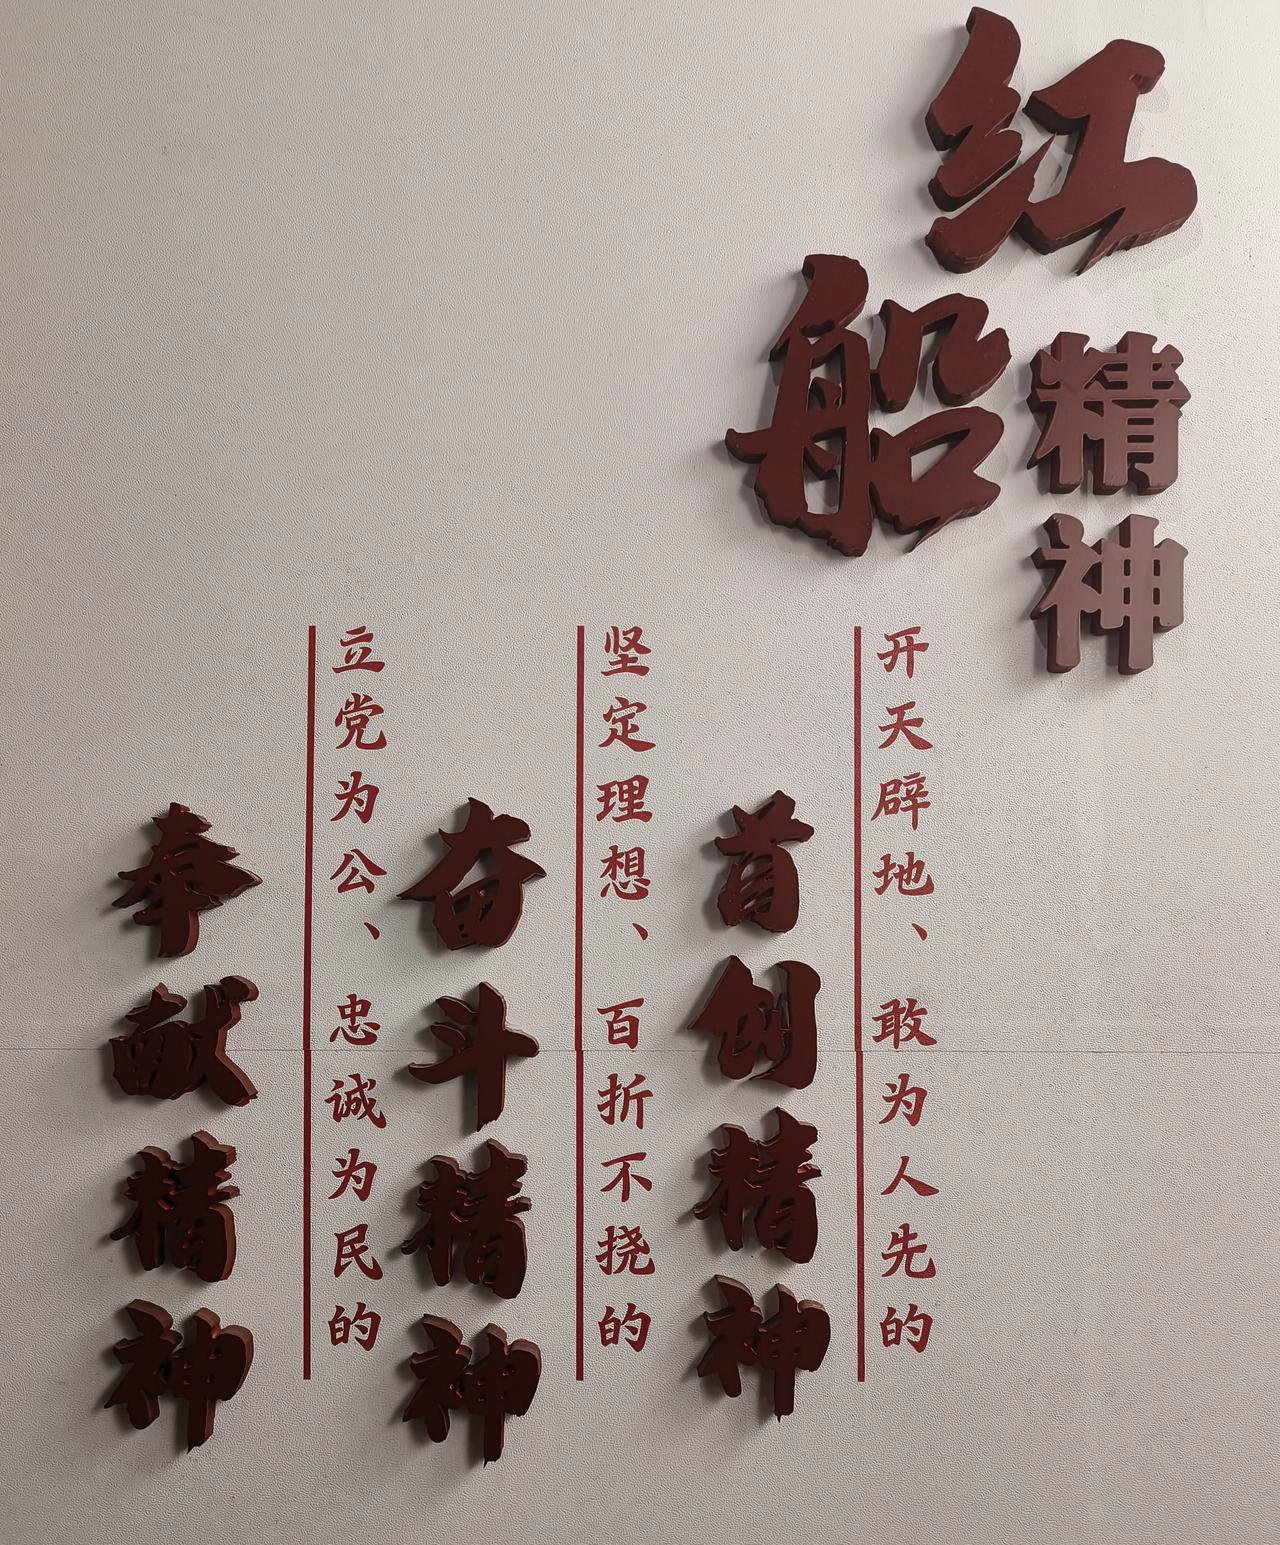 红船
精神
开天辟地、敢为人先的
首创精神
坚定理想、百折不挠的
奋斗精神
立党为公、忠诚为民的
奉献精神